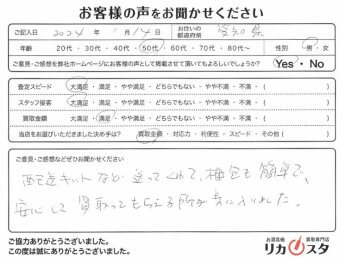 お客様の声をお聞かせください
ご記入日 2024年 1月14日 お住いの都道府県 愛知県
年齢 20代・30代・40代・50代・60代・70代・80代〜 性別 男・女
ご意見・ご感想を弊社ホームページにお客様の声として掲載させて頂いてもよろしいでしょうか? Yes・No
査定スピード 大満足・満足・やや満足・どちらでもない・やや不満・不満・( )
スタッフ接客 大満足・満足・やや満足・どちらでもない・やや不満・不満・( )
買取金額 大満足・満足・やや満足・どちらでもない・やや不満・不満・( )
当店をお選びいただきました決め手は? 買取金額・対応力・利便性・スピード・その他( )
ご意見・ご感想などぜひお聞かせください
配送キットなど送ってくれて、梱包も簡単で、
安心して買取ってもらえる所が気に入りました。
ご協力ありがとうございました。
この度は誠にありがとうございました。
お酒高価買取専門店
リカスタ